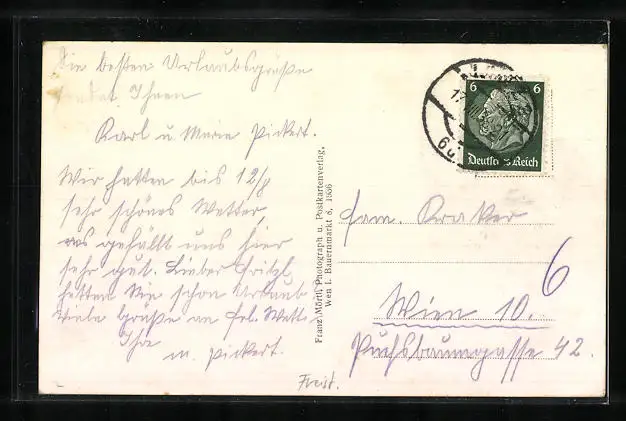 Die besten Urlaubsgrüße
sendet Ihnen
Karl u. Marie Pickert.
Wir hatten bis 12/8
sehr schönes Wetter,
es gefällt uns hier
sehr gut. Lieber Fritzl
hatten Sie schon Urlaub
Viele Grüße an Frl. Wett.
Ihre
M. Pickert.
Franz Mörtl, Photograph u. Postkartenverlag,
Wien I. Bauernmarkt 8, 1936
6 6
Deutsches Reich
Fam. Kraker
6
Wien 10.
Puchsbaumgasse 42.
Freist.